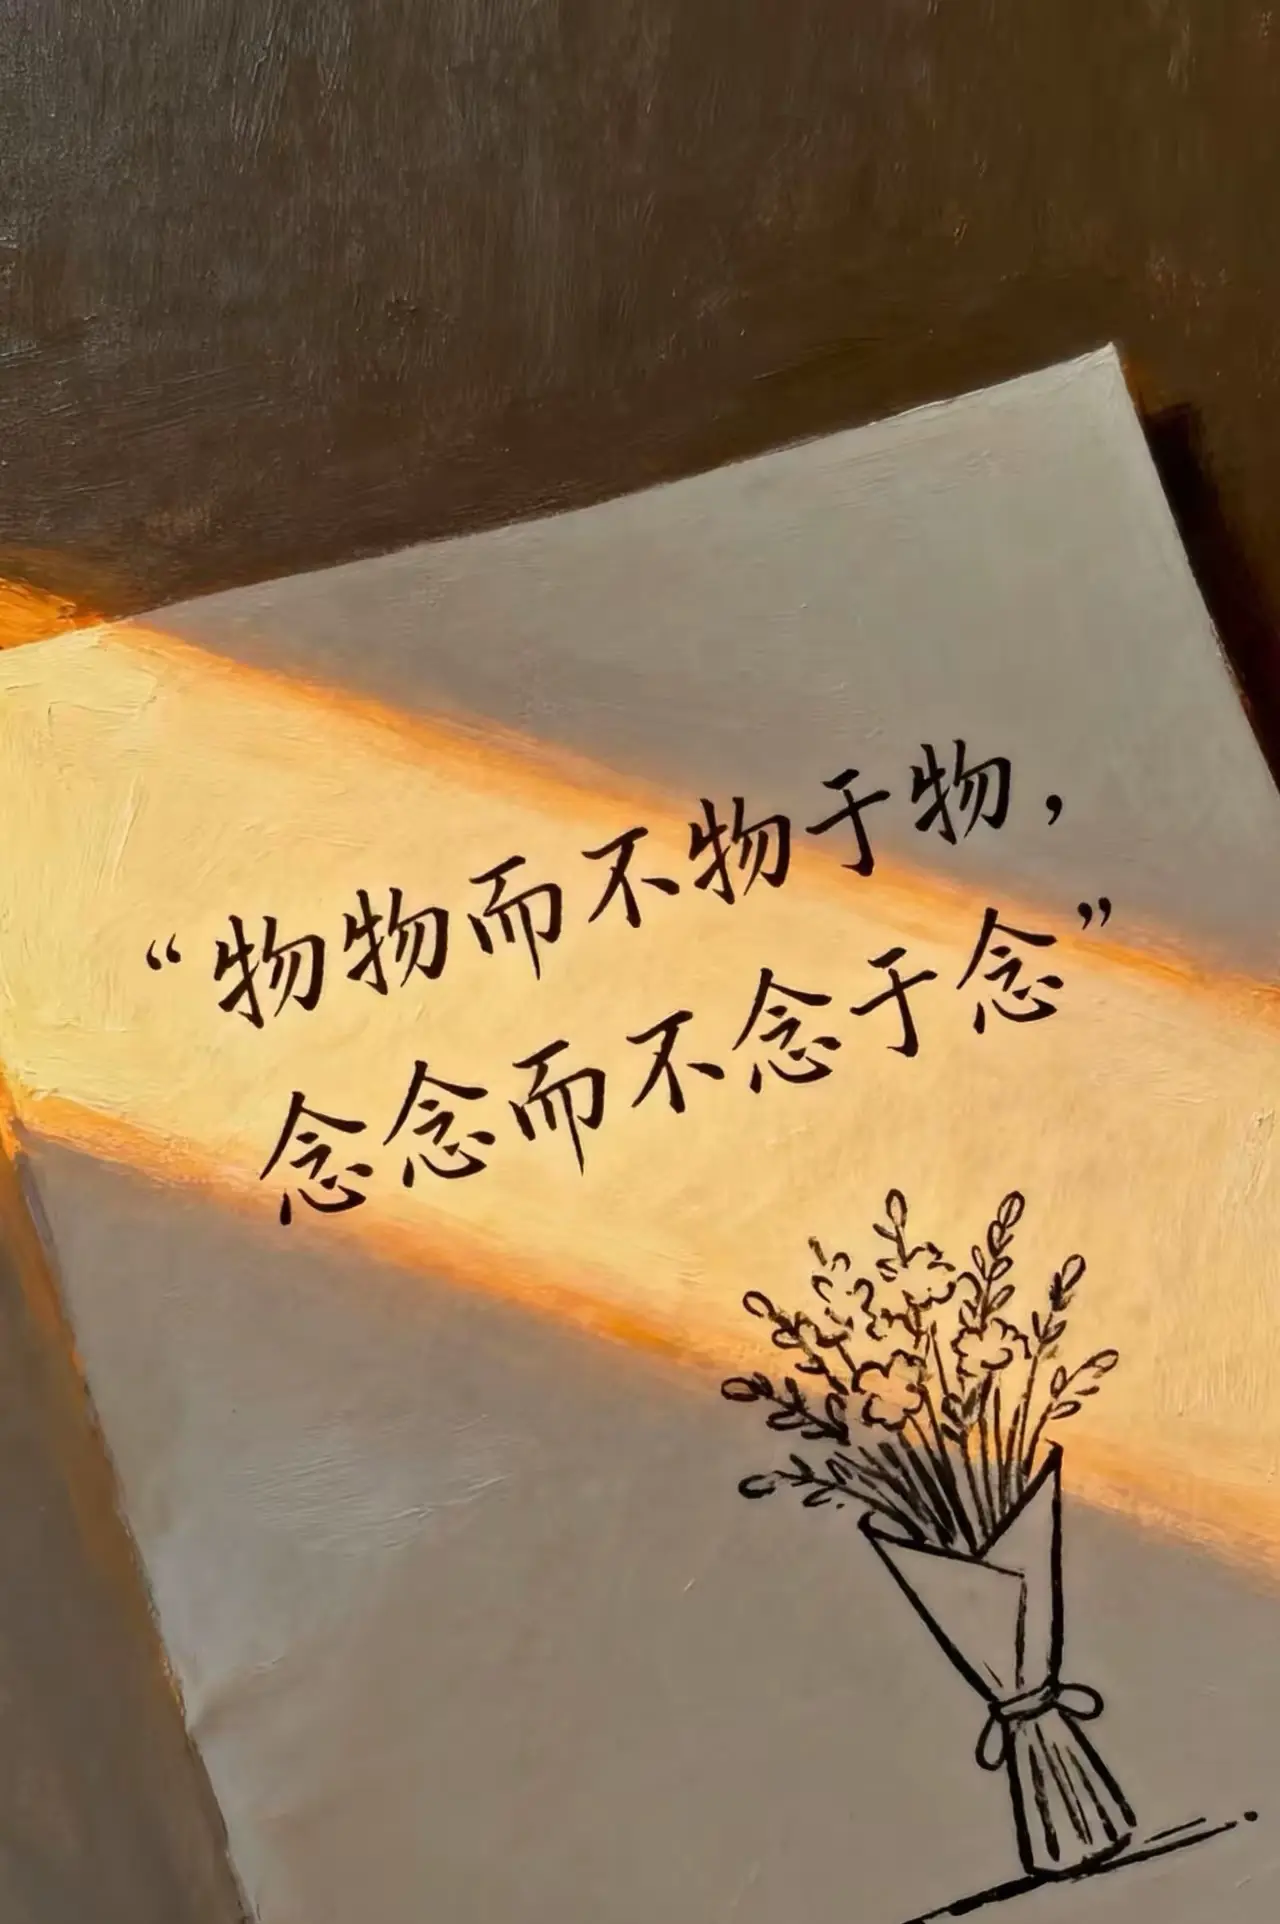 “物物而不物于物，
念念而不念于念”